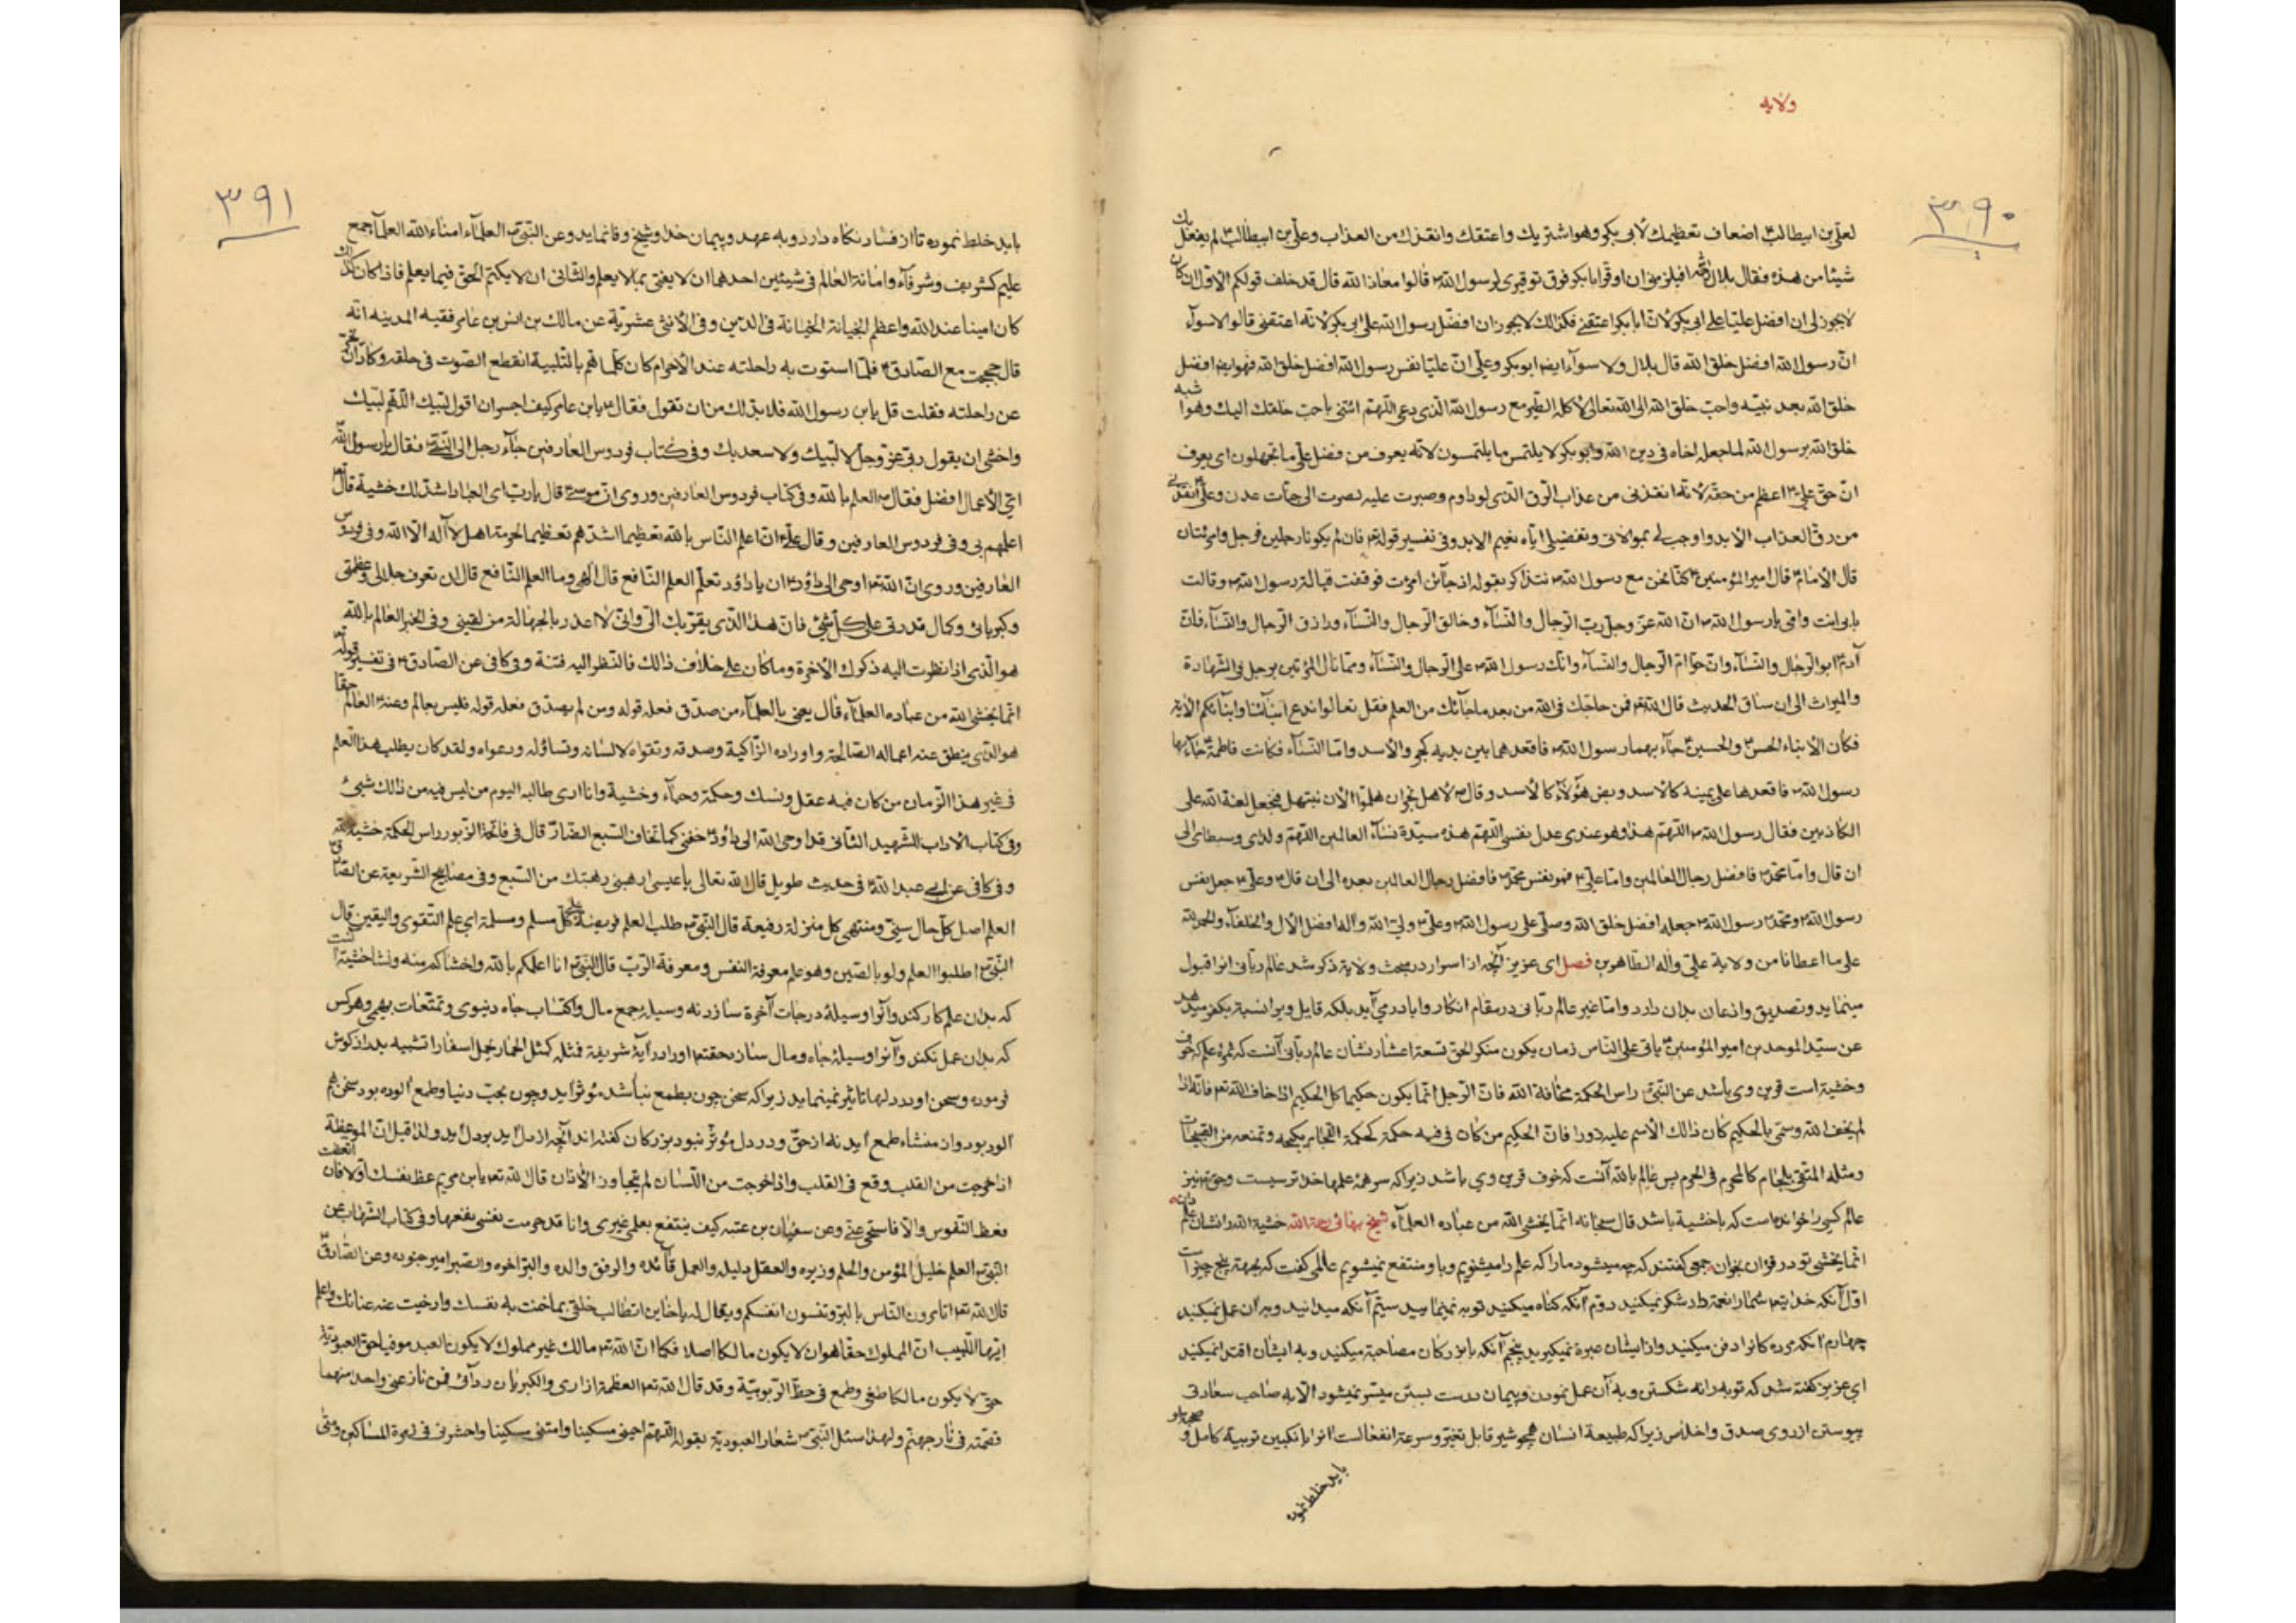 ولایه
۳۹۰
لعلی بن ابیطالب اضعاف تعظیمك لابی بكر وهو اشتریك واعتقك وانقذك من العذاب وعلی بن ابیطالب لم یفعل بك
شیئا من هذه فقال بلال افیلزمنی ان اوقر ابابكر فوق توقیری لرسول الله قالوا معاذ الله قال قد خلف قولكم الاول ان كان
لا یجوز لی ان افضل علیا علی ابی بكر لان ابابكر اعتقنی فكذالك لا یجوز ان افضل رسول الله علی ابی بكر لانه اعتقنی قالوا لا سوآء
ان رسول الله افضل خلق الله قال بلال ولا سوآء ایضا ابو بكر وعلی ان علیا نفس رسول الله افضل خلق الله فهو ایضا افضل
خلق الله بعد نبیه واحب خلق الله الی الله تعالی لاكله الطیر مع رسول الله الذی دعی اللهم ائتنی باحب خلقك الیك وهو اشبه
خلق الله برسول الله لما جعله اخاه فی دین الله وابو بكر لا یلتمس ما یلتمسون لانه یعرف من فضل علی ما تجهلون ای یعرف
ان حق علی اعظم من حقه لانه انقذنی من عذاب الرق الذی لو دام وصبرت علیه لصرت الی جنات عدن وعلی انقذنی
من رق العذاب الابد واوجب لی بموالاتی وتفضیلی ایاه نعیم الابد وفی تفسیر قوله فان لم یكونا رجلین فرجل وامرئتان
قال الامام قال امیر المؤمنین كنا نحن مع رسول الله نتذاكر بقوله اذ جآئن امرئة فوقفت قبالة رسول الله وقالت
بابی انت وامی یا رسول الله ان الله عز وجل رب الرجال والنسآء وخالق الرجال والنسآء ورازق الرجال والنسآء فان
آدم ابو الرجال والنسآء وان حوا ام الرجال والنسآء وانك رسول الله علی الرجال والنسآء وما نال المرئتین برجل فی الشهادة
والمیراث الی ان ساق الحدیث قال الله فمن حاجك فی الله من بعد ما جآئك من العلم فقل تعالوا ندع ابنآئنا وابنآئكم الایه
فكان الابناء الحسن والحسین جآء بهما رسول الله فاقعدهما بین یدیه كجر والاسد واما النسآء فكانت فاطمة جآء بها
رسول الله فاقعدها علی یمینه كالاسد وبض هؤلآء كالاسد وقال لاهل نجران هلموا الان نبتهل فنجعل لعنة الله علی
الكاذبین فقال رسول الله اللهم هذا وهو عندی عدل نفسی اللهم هذه سیدة نسآء العالمین اللهم ولدای وسبطای الی
ان قال واما محمد فافضل رجال العالمین واما علی فهو نفس محمد فافضل رجال العالمین بعده الی ان قال وعلی جعل نفس
رسول الله ومحمد رسول الله جعله افضل خلق الله وصلی علی رسول الله وعلی ولی الله واله افضل الال والخلفآء والحمد لله
علی ما اعطانا من ولایة علی واله الطاهرین فصل ای عزیز آنچه از اسرار در مبحث ولایة ذكر شد عالم ربانی انرا قبول
مینماید وتصدیق واذعان بدان دارد واما غیر عالم ربانی در مقام انكار وابا در می آید بلكه قایل ویرا نسبة بكفر میدهد
عن سید الموحدین امیر المؤمنین یاتی علی الناس زمان یكون منكر الحق تسعة اعشار نشان عالم ربانی آنست كه ثمرهٔ علم كه خوف
وخشیة است قرین وی باشد عن النبی راس الحكمة مخافة الله فان الرجل انما یكون حكیما كل الحكیم اذا خاف الله فانه اذا
لم یخف الله وسمی بالحكیم كان ذالك الاسم علیه زورا فان الحكیم من كان فی فیه حكمة كحكمة اللجام یكبحه وتمنعه من القبیحات
ومثله المتقی بلجام كالمحرم فی الحرم پس عالم بالله آنست كه خوف قرین وی باشد زیرا كه سر همهٔ علمها خدا ترسیست وحق نیز
عالم كسی را خوانده است كه با خشیة باشد قال سبحانه انما یخشی الله من عباده العلمآء شیخ بهائی رحمة الله خشیة الله را نشان علم دان
انما یخشی تو در قران بخوان جمعی گفتند كه چه میشود ما را كه علم را میشنویم وبا و منتفع نمیشویم عالمی گفت كه بجهة پنج چیز است
اول آنكه خدایتعالی شما را نعمة داد شكر نمیكنید دوم آنكه گناه میكنید توبه نمینمایید سیم آنكه میدانید وبه آن عمل نمیكنید
چهارم آنكه مرده كانرا دفن میكنید واز ایشان عبرة نمیگیرید پنجم آنكه با بزركان مصاحبة میكنید وبه ایشان اقتدا نمیكنید
ای عزیز گفته شد كه توبه رانه شكستن وبه آن عمل نمودن وپیمان درست بستن میسر نمیشود الا به صاحب سعادتی
پیوستن از روی صدق واخلاص زیرا كه طبیعة انسان همچو شیر قابل تغیر وسرعة انفعالست انرا با نكبین تربیة كامل و صحبت او
باید خلط نموده
۳۹۱
باید خلط نموده تا از فساد نكاه دارد وبه عهد وپیمان خدا وشیخ وفا نماید وعن النبی العلمآء امناء الله العلمآ جمع
علیم كشریف وشرفآء وامانة العالم فی شیئین احدهما ان لا یفتی بما لا یعلم والثانی ان لا یكتم الحق فیما یعلم فاذا كان كذالك
كان امینا عند الله واعظم الخیانة الخیانة فی الدین وفی الاثنی عشریة عن مالك بن انس بن عامر فقیه المدینه انه
قال حججت مع الصادق فلما استوت به راحلته عند الاحرام كان كلما هم بالتلبیة انقطع الصوت فی حلقه وكاد ان یخر
عن راحلته فقلت قل یابن رسول الله فلا بد لك من ان تقول فقال یابن عامر كیف اجسر ان اقول لبیك اللهم لبیك
واخشی ان یقول ربی عز وجل لا لبیك ولا سعدیك وفی كتاب فردوس العارفین جآء رجل الی النبی فقال یا رسول الله
ای الاعمال افضل فقال العلم بالله وفی كتاب فردوس العارفین وروی ان موسی قال یا رب ای العباد اشد لك خشیة قال
اعلمهم بی وفی فردوس العارفین وقال علی ان اعلم الناس بالله تعظیما اشدهم تعظیما لحرمة اهل لا آله الا الله وفی فردوس
العارفین وروی ان الله اوحی الی داود ان یا داود تعلم العلم النافع قال الهی وما العلم النافع قال ان تعرف جلالی وعظمتی
وكبریائی وكمال قدرتی علی كل شئ فان هذا الذی یقربك الی وانی لا اعذر بالجهالة من لقینی وفی الخبر العالم بالله
هو الذی اذا نظرت الیه ذكرك الاخرة وما كان علی خلاف ذالك فالنظر الیه فتنة وفی كافی عن الصادق فی تفسیر قوله
انما یخشی الله من عباده العلمآء قال یعنی بالعلمآء من صدق فعله قوله ومن لم یصدق فعله قوله فلیس بعالم وعنه العالم حقا
هو الذی ینطق عنه اعماله الصالحة واوراده الزاكیة وصدقه وتقواه لا لسانه وتساؤله ودعواه ولقد كان یطلب هذا العلم
فی غیر هذا الزمان من كان فیه عقل ونسك وحكمة وحیآء وخشیة وانا اری طالبه الیوم من لیس فیه من ذالك شیئ
وفی كتاب الاداب للشهید الثانی قد اوحی الله الی داود خفنی كما تخاف السبع الضار قال فی فاتحة الزبور راس الحكمة خشیة الله
وفی كافی عن ابی عبد الله فی حدیث طویل قال الله تعالی یا عیسی ارهبنی رهبتك من السبع وفی مصابیح الشریعة عن الصادق
العلم اصل كل حال سنی ومنتهی كل منزلة رفیعة قال النبی طلب العلم فریضة علی كل مسلم ومسلمة ای علم التقوی والیقین قال
النبی اطلبوا العلم ولو بالصین وهو علم معرفة النفس ومعرفة الرب قال النبی انا اعلمكم بالله واخشاكم منه ونشا خشیة انست
كه بدان علم كار كند وآنرا وسیلهٔ درجات آخرة سازد نه وسیلهٔ جمع مال واكتساب جاه دنیوی وتمتعات بهیمی وهر كس
كه بدان عمل نكند وآنرا وسیلهٔ جاه ومال سازد حقتعالی اورا در آیهٔ شریفة فمثله كمثل الحمار یحمل اسفارا تشبیه بدرازگوش
فرموده وسخن او در دلها تاثیر نمینماید زیرا كه سخن چون بطمع نباشد مؤثر آید وچون بحب دنیا وطمع الوده بود سخن هم
الود بود واز منشاء طمع آید نه از حق ودر دل مؤثر نبود بزركان گفته اند آنچه از دل آید بر دل آید ولذا قیل ان الموعظة
اذا خرجت من القلب وقع فی القلب واذا خرجت من اللسان لم یتجاوز الاذان قال الله یابن مریم عظ نفسك اولا فان اتعظت
فعظ النفوس والا فاستحی منی وعن سفیان بن عتبه كیف ینتفع بعلمی غیری وانا قد حرمت نفسی نفعها وفی كتاب الشهاب عن
النبی العلم خلیل المؤمن والحلم وزیره والعقل دلیله والعمل قآئده والرفق والده والبر اخوه والصبر امیر جنوده وعن الصادق
قال الله اتامرون الناس بالبر وتنسون انفسكم ویقال له یا خاین اتطالب خلقی بما خنت به نفسك وارخیت عنه عنانك واعلم
ایها اللبیب ان المملوك حقا هو ان لا یكون مالكا اصلا فكما ان الله مالك غیر مملوك لا یكون العبد موفیا حق العبودیة
حتی لا یكون مالكا طغی وطمع فی حظ الربوبیة وقد قال الله العظمة ازاری والكبریاء ردآئی فمن نازعنی واحدا منهما
قصمته فی نار جهنم ولهذا سئل النبی شعار العبودیة بقوله اللهم احینی مسكینا وامتنی مسكینا واحشرنی فی زمرة المساكین ومتی